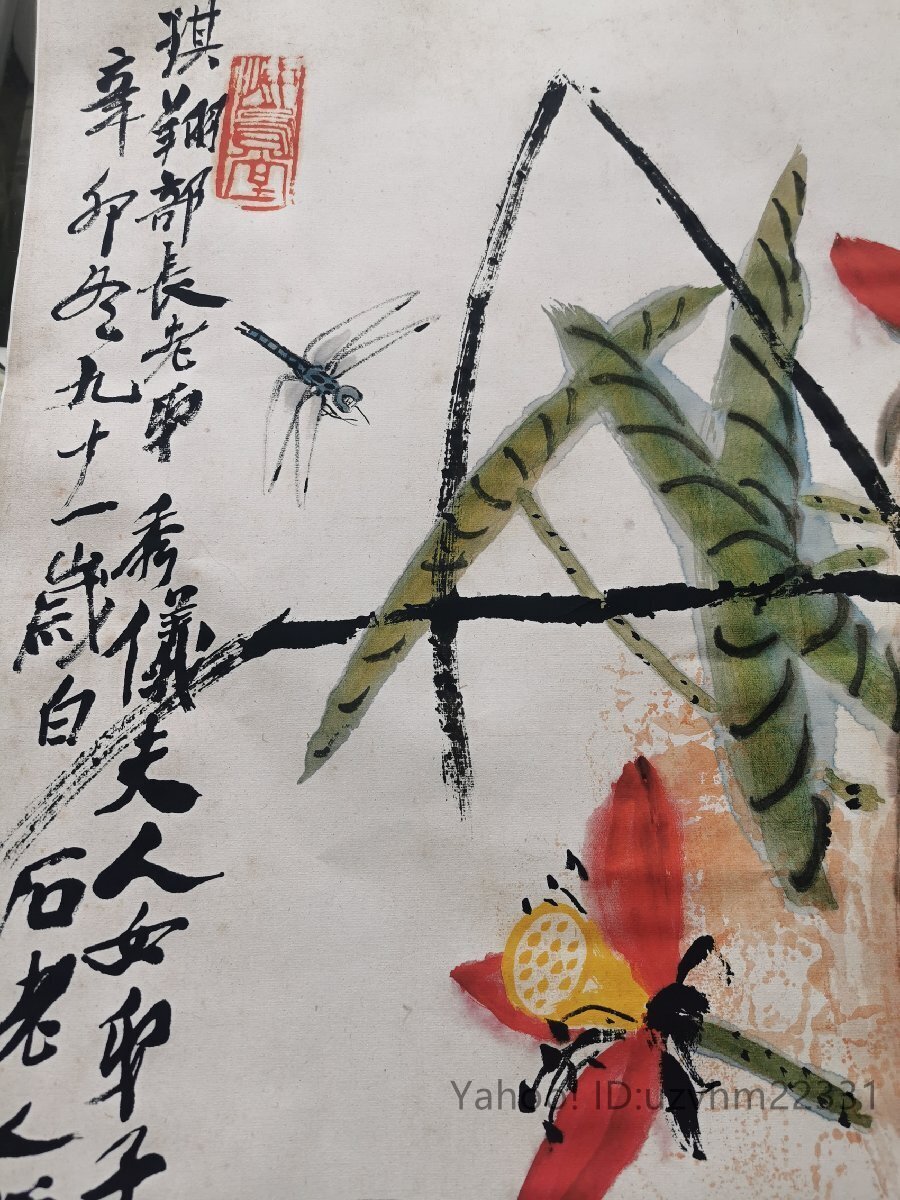 琪翔部長老弟 秀儀夫人女弟子
辛卯冬九十一歲白石老人
悔烏堂
Yahoo! ID:uzvnm22331